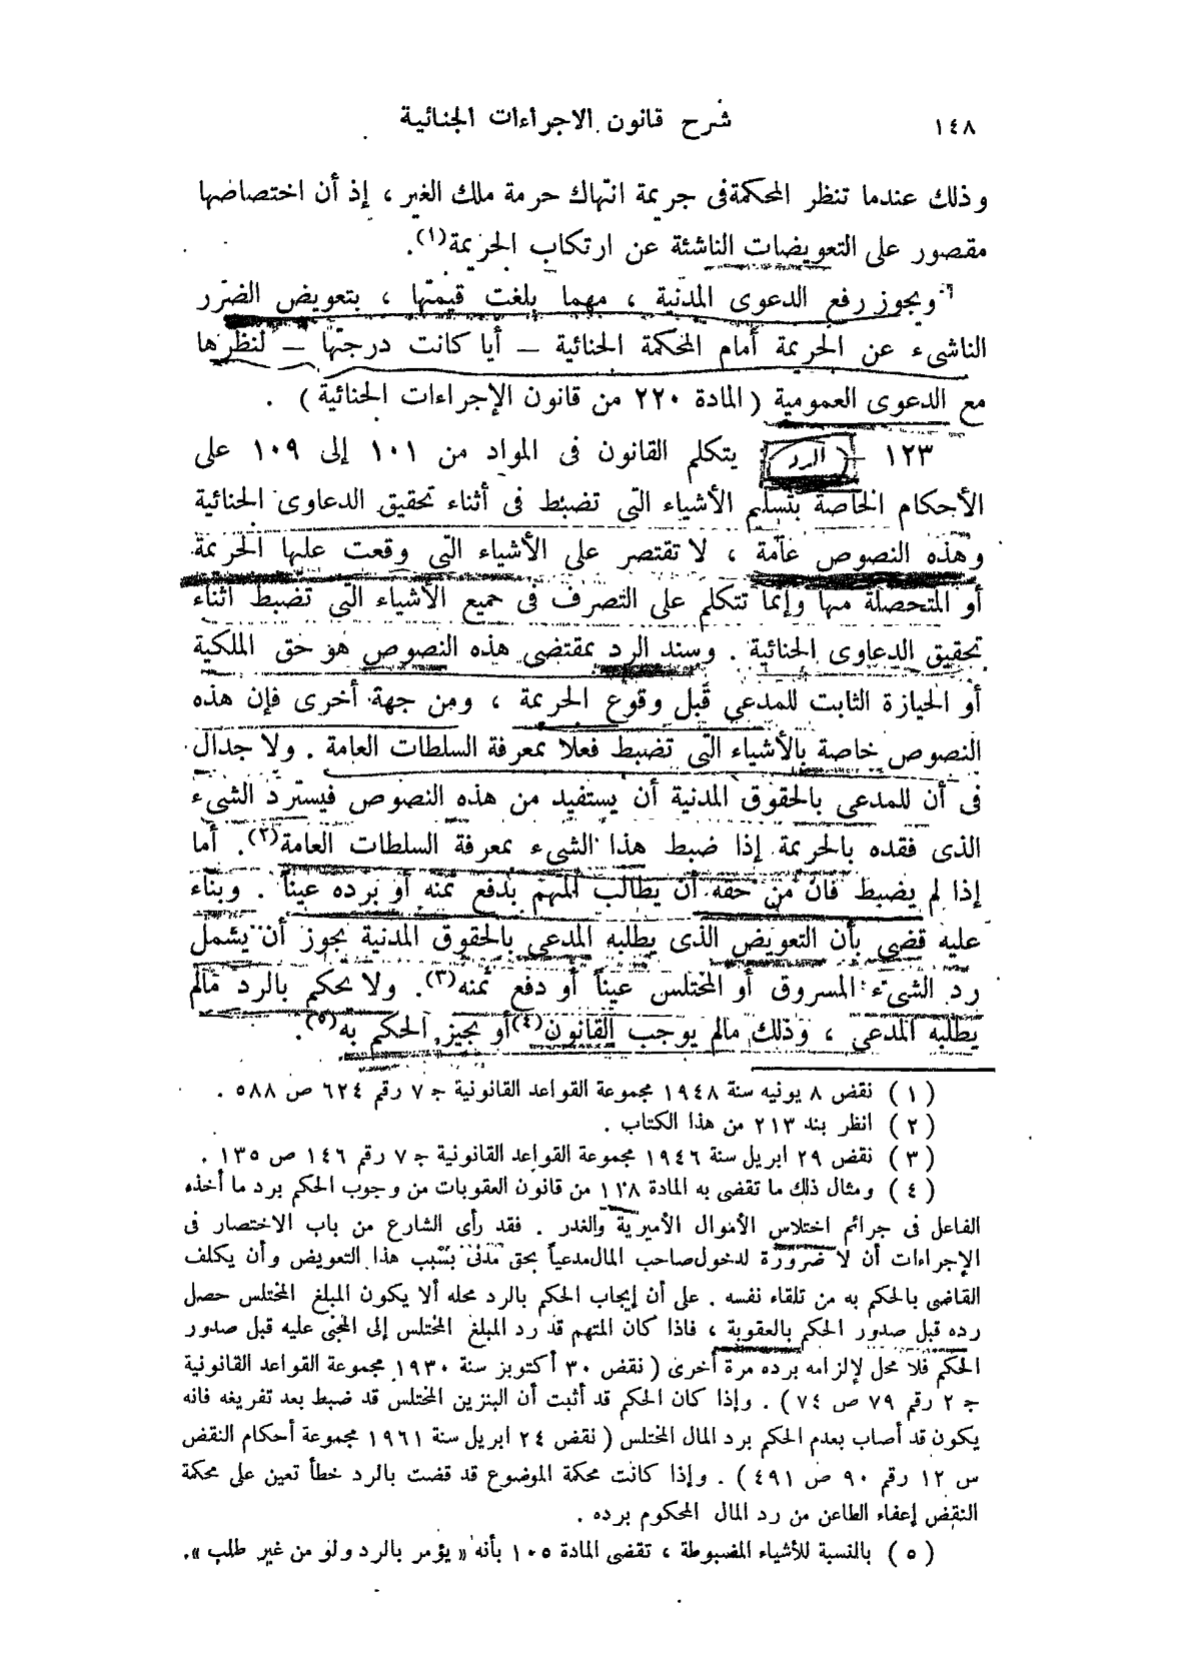 ١٤٨ شرح قانون الاجراءات الجنائية
وذلك عندما تنظر المحكمة فى جريمة انتهاك حرمة ملك الغير ، إذ أن اختصاصها
مقصور على التعويضات الناشئة عن ارتكاب الجريمة(١).
ويجوز رفع الدعوى المدنية ، مهما بلغت قيمتها ، بتعويض الضرر
الناشىء عن الجريمة أمام المحكمة الجنائية – أيا كانت درجتها – لنظرها
مع الدعوى العمومية ( المادة ٢٢٠ من قانون الإجراءات الجنائية ) .
١٢٣ – ( الرد ) يتكلم القانون فى المواد من ١٠١ إلى ١٠٩ على
الأحكام الخاصة بتسليم الأشياء التى تضبط فى أثناء تحقيق الدعاوى الجنائية
وهذه النصوص عامة ، لا تقتصر على الأشياء التى وقعت عليها الجريمة
أو المتحصلة منها وإنما تتكلم على التصرف فى جميع الأشياء التى تضبط أثناء
تحقيق الدعاوى الجنائية . وسند الرد بمقتضى هذه النصوص هو حق الملكية
أو الحيازة الثابت للمدعى قبل وقوع الجريمة ، ومن جهة أخرى فإن هذه
النصوص خاصة بالأشياء التى تضبط فعلا بمعرفة السلطات العامة . ولا جدال
فى أن للمدعى بالحقوق المدنية أن يستفيد من هذه النصوص فيسترد الشىء
الذى فقده بالجريمة إذا ضبط هذا الشىء بمعرفة السلطات العامة(٢). أما
إذا لم يضبط فان من حقه أن يطالب المتهم بدفع ثمنه أو برده عيناً . وبناء
عليه قضى بأن التعويض الذى يطلبه المدعى بالحقوق المدنية يجوز أن يشمل
رد الشىء المسروق أو المختلس عيناً أو دفع ثمنه(٣). ولا يحكم بالرد مالم
يطلبه المدعى ، وذلك مالم يوجب القانون(٤) أو يجيز الحكم به(٥).
( ١ ) نقض ٨ يونيه سنة ١٩٤٨ مجموعة القواعد القانونية ج ٧ رقم ٦٢٤ ص ٥٨٨ .
( ٢ ) انظر بند ٢١٣ من هذا الكتاب .
( ٣ ) نقض ٢٩ ابريل سنة ١٩٤٦ مجموعة القواعد القانونية ج ٧ رقم ١٤٦ ص ١٣٥ .
( ٤ ) ومثال ذلك ما تقضى به المادة ١١٨ من قانون العقوبات من وجوب الحكم برد ما أخذه
الفاعل فى جرائم اختلاس الأموال الأميرية والغدر . فقد رأى الشارع من باب الاختصار فى
الإجراءات أن لا ضرورة لدخول صاحب المال مدعياً بحق مدنى بسبب هذا التعويض وأن يكلف
القاضى بالحكم به من تلقاء نفسه . على أن إيجاب الحكم بالرد محله ألا يكون المبلغ المختلس حصل
رده قبل صدور الحكم بالعقوبة ، فاذا كان المتهم قد رد المبلغ المختلس إلى المجنى عليه قبل صدور
الحكم فلا محل لإلزامه برده مرة أخرى ( نقض ٣٠ أكتوبر سنة ١٩٣٠ مجموعة القواعد القانونية
ج ٢ رقم ٧٩ ص ٧٤ ) . وإذا كان الحكم قد أثبت أن البنزين المختلس قد ضبط بعد تفريغه فانه
يكون قد أصاب بعدم الحكم برد المال المختلس ( نقض ٢٤ ابريل سنة ١٩٦١ مجموعة أحكام النقض
س ١٢ رقم ٩٠ ص ٤٩١ ) . وإذا كانت محكمة الموضوع قد قضت بالرد خطأ تعين على محكمة
النقض إعفاء الطاعن من رد المال المحكوم برده .
( ٥ ) بالنسبة للأشياء المضبوطة ، تقضى المادة ١٠٥ بأنه « يؤمر بالرد ولو من غير طلب ».